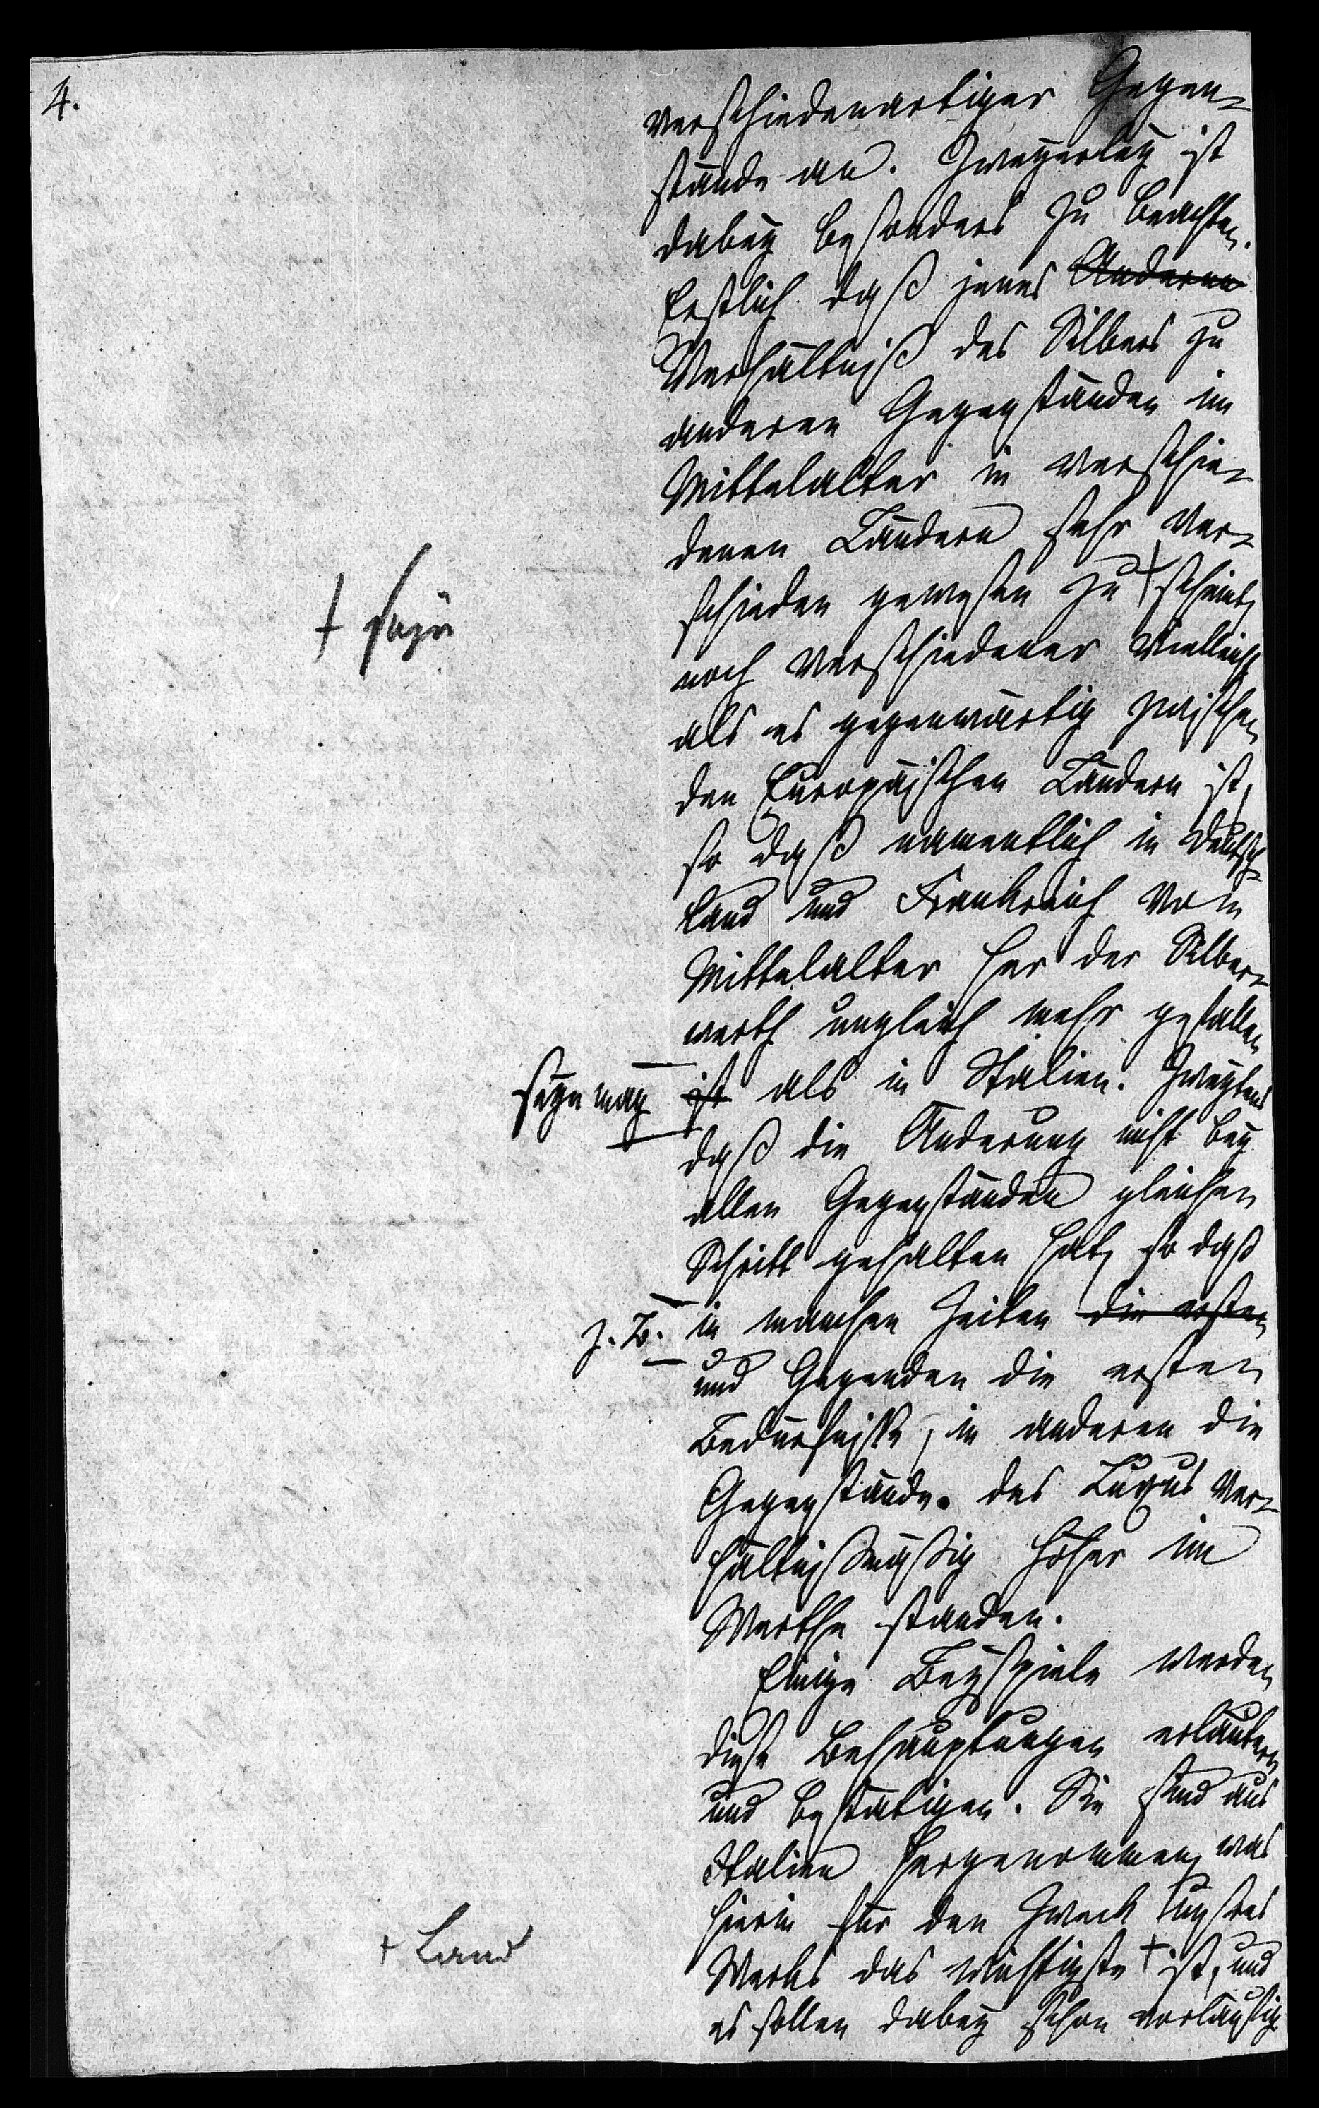 4.
verschiedenartiger Gegen-
stände an. Zweyerley ist
dabey besonders zu beachten.
Erstlich daß jenes Anderen
Verhältniß des Silbers zu
anderen Gegenständen im
Mittelalter in verschie-
denen Ländern sehr ver-
schieden gewesen zu + scheint,
+ seyn
noch verschiedener vielleicht
als es gegenwärtig zwischen
den Europäischen Ländern ist,
so daß namentlich in Deutsch-
land und Frankreich vom
Mittelalter her der Silber-
werth ungleich mehr gefallen
seyn mag ist als in Italien. Zweytens
daß die Änderung nicht bey
allen Gegenständen gleichen
Schritt gehalten hat, so daß
z. B. in manchen Zeiten die ersten
und Gegenden die ersten
Bedürfnisse, in anderen die
Gegenstände des Luxus ver-
hältnißmäßig höher im
Werthe standen.
Einige Beyspiele werden
diese Behauptungen erläutern
und bestätigen. Sie sind aus
Italien hergenommen, was
hierin für den Zweck unsres
Werks das wichtigste + ist, und
+ Land
es sollen dabey schon vorläufig